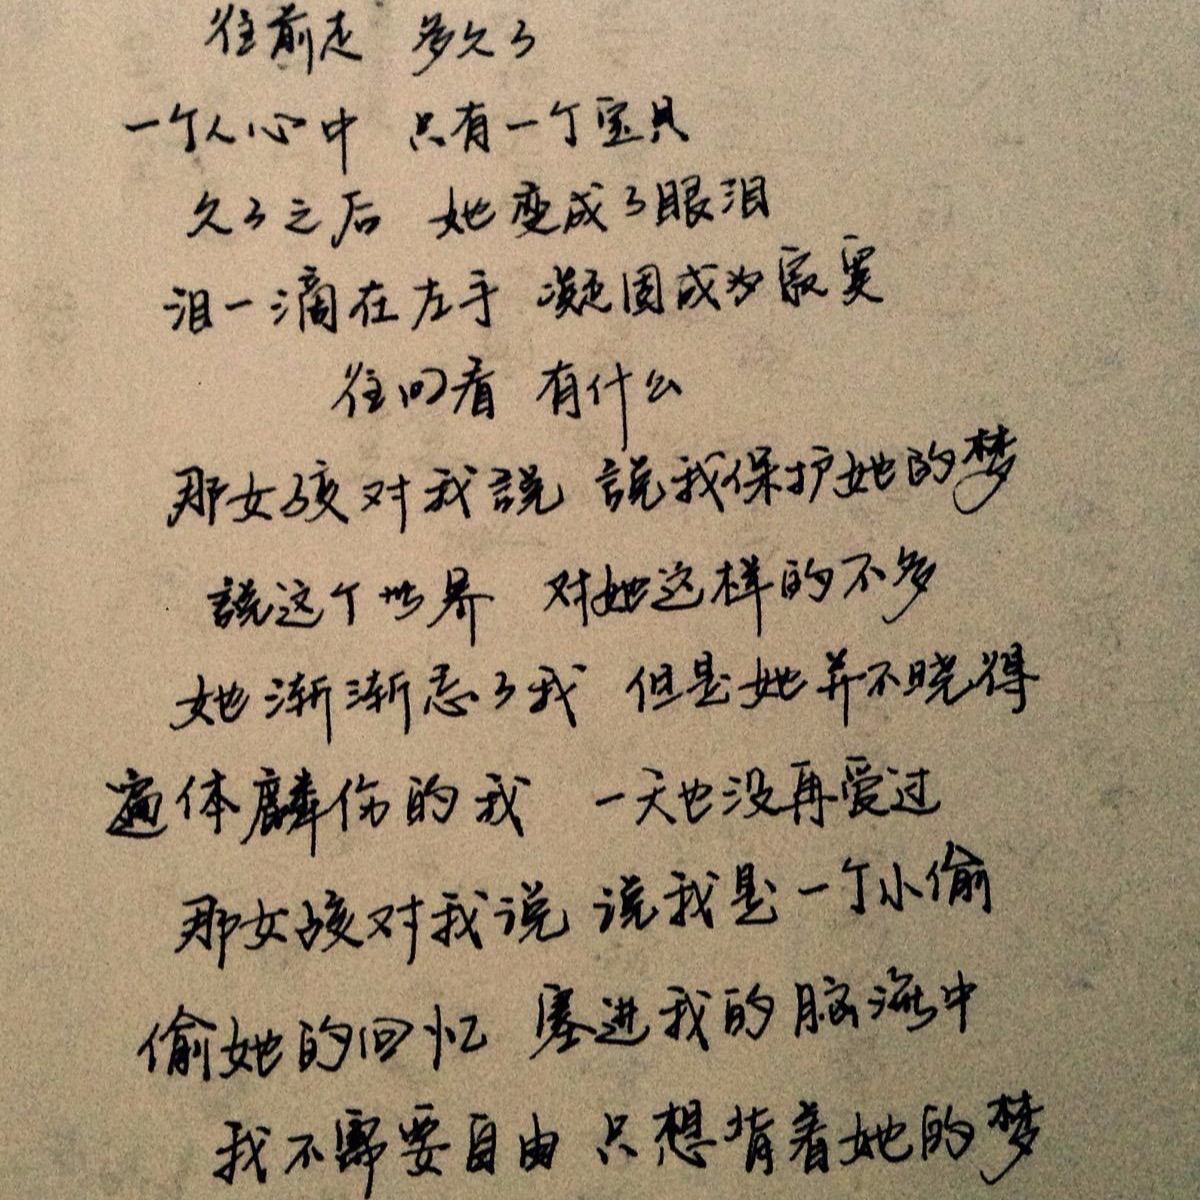 往前走 多久了
一个人心中 只有一个宝贝
久了之后 她变成了眼泪
泪一滴在左手 凝固成为寂寞
往回看 有什么
那女孩对我説 説我保护她的梦
説这个世界 对她这样的不多
她渐渐忘了我 但是她并不晓得
遍体麟伤的我 一天也没再爱过
那女孩对我说 说我是一个小偷
偷她的回忆 塞进我的脑海中
我不需要自由 只想背着她的梦